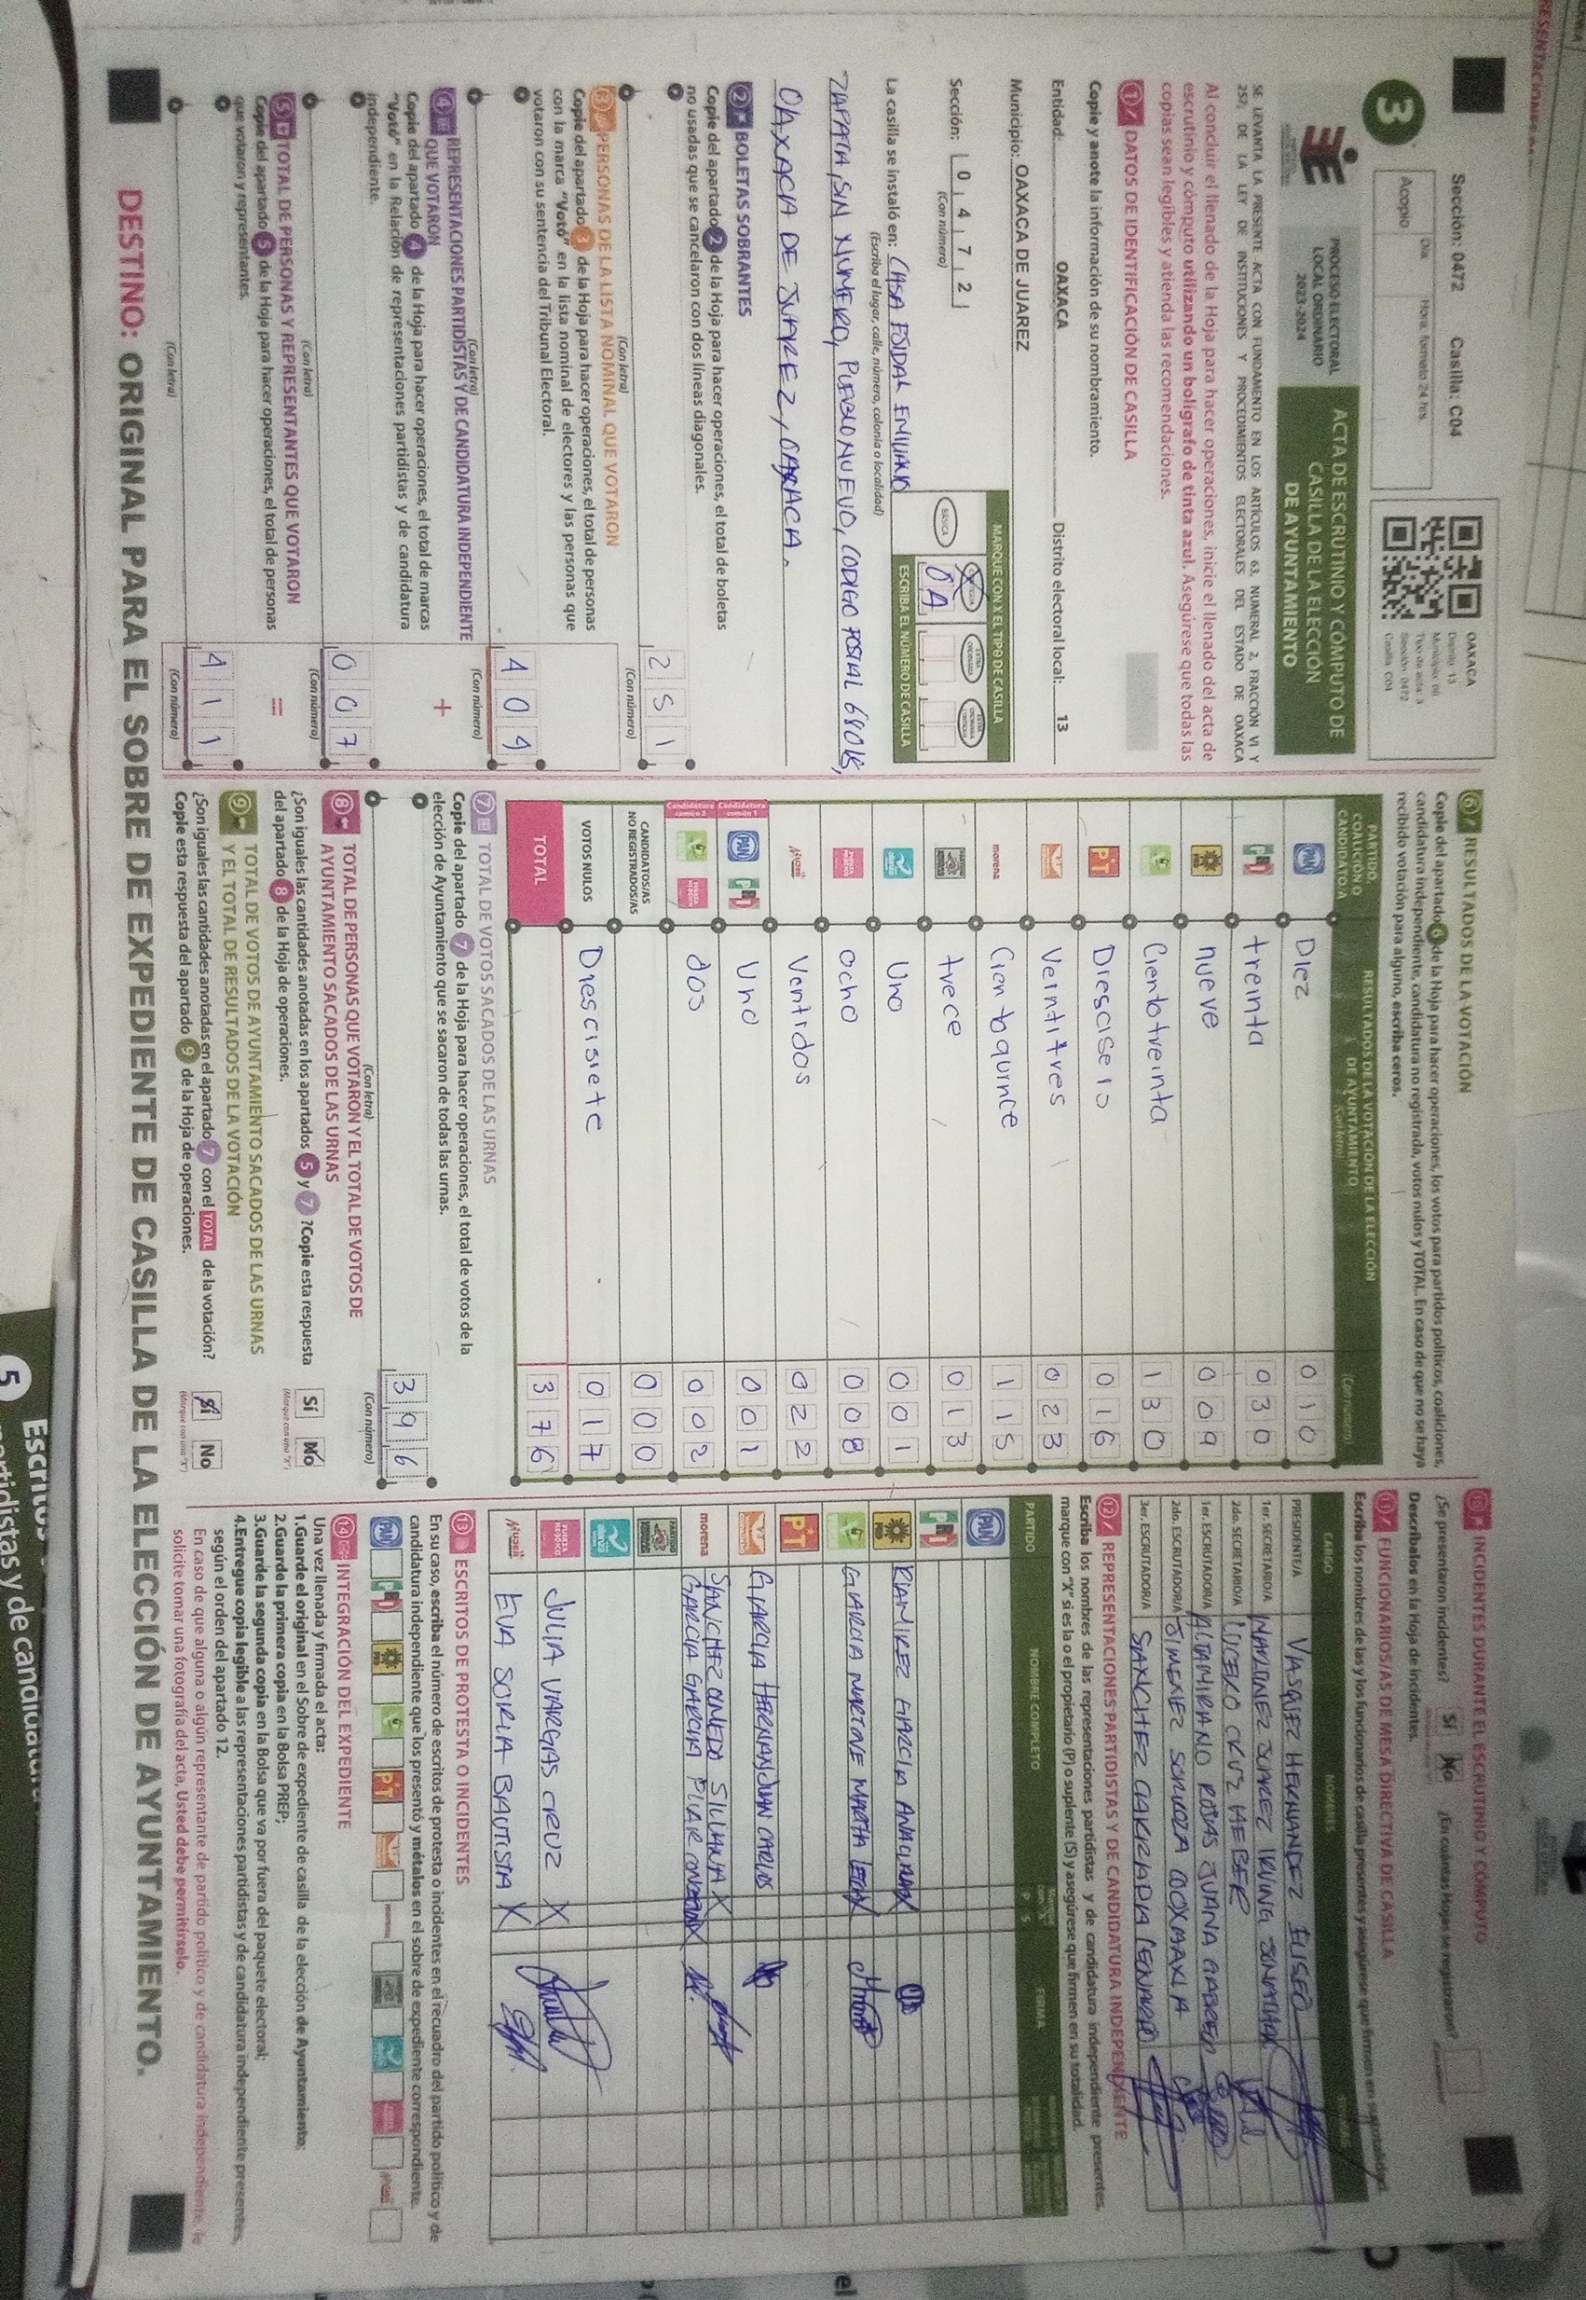 Sección: 0472 Casilla: C04
3
Acopio
Día:
Hora, formato 24 hrs.
OAXACA
Distrito 13
Tipo de acta 3
Sección 0472
Casilla C04
PROCESO ELECTORAL
LOCAL ORDINARIO
2023-2024
ACTA DE ESCRUTINIO Y CÓMPUTO DE
CASILLA DE LA ELECCIÓN
DE AYUNTAMIENTO
SE LEVANTA LA PRESENTE ACTA CON FUNDAMENTO EN LOS ARTÍCULOS 63, NUMERAL 2, FRACCIÓN VI Y
257, DE LA LEY DE INSTITUCIONES Y PROCEDIMIENTOS ELECTORALES DEL ESTADO DE OAXACA
Al concluir el llenado de la Hoja para hacer operaciones, inicie el llenado del acta de
escrutinio y cómputo utilizando un bolígrafo de tinta azul. Asegúrese que todas las
copias sean legibles y atienda las recomendaciones.
1 DATOS DE IDENTIFICACIÓN DE CASILLA
Copie y anote la información de su nombramiento.
Entidad: OAXACA Distrito electoral local: 13
Municipio: OAXACA DE JUAREZ
Sección: 0 4 7 2
(Con número)
MARQUE CON X EL TIPO DE CASILLA
BÁSICA
ESCRIBA EL NÚMERO DE CASILLA
La casilla se instaló en: CASA EJIDAL EMILIANO
(Escriba el lugar, calle, número, colonia o localidad)
ZAPATA, SIN NUMERO, PUEBLO NUEVO, CODIGO POSTAL
OAXACA DE JUAREZ, OAXACA.
2 BOLETAS SOBRANTES
Copie del apartado 2 de la Hoja para hacer operaciones, el total de boletas
no usadas que se cancelaron con dos líneas diagonales.
2 5 1
(Con letra) (Con número)
3 PERSONAS DE LA LISTA NOMINAL QUE VOTARON
Copie del apartado 3 de la Hoja para hacer operaciones, el total de personas
con la marca "Votó" en la lista nominal de electores y las personas que
votaron con su sentencia del Tribunal Electoral.
4 0 9
(Con letra) (Con número)
+
4 REPRESENTACIONES PARTIDISTAS Y DE CANDIDATURA INDEPENDIENTE
QUE VOTARON
Copie del apartado 4 de la Hoja para hacer operaciones, el total de marcas
"Votó" en la Relación de representaciones partidistas y de candidatura
independiente.
0 0 7
(Con letra) (Con número)
=
5 TOTAL DE PERSONAS Y REPRESENTANTES QUE VOTARON
Copie del apartado 5 de la Hoja para hacer operaciones, el total de personas
que votaron y representantes.
4 1 1
(Con letra) (Con número)
6 RESULTADOS DE LA VOTACIÓN
Copie del apartado 6 de la Hoja para hacer operaciones, los votos para partidos políticos, coaliciones,
candidatura independiente, candidatura no registrada, votos nulos y TOTAL. En caso de que no se haya
recibido votación para alguno, escriba ceros.
PARTIDO,
COALICIÓN O
CANDIDATO/A
RESULTADOS DE LA VOTACIÓN DE LA ELECCIÓN
DE AYUNTAMIENTO
(Con letra)
(Con número)
PAN Diez 0 1 0
PRI treinta 0 3 0
PRD nueve 0 0 9
Cientotreinta 1 3 0
PT Diesciseis 0 1 6
Veintitres 0 2 3
morena Ciento quince 1 1 5
trece 0 1 3
Uno 0 0 1
ocho 0 0 8
MUJER Ventidos 0 2 2
Candidatura común 1 PAN PRI Uno 0 0 1
Candidatura común 2 dos 0 0 2
CANDIDATOS/AS
NO REGISTRADOS/AS 0 0 0
VOTOS NULOS Diescisiete 0 1 7
TOTAL 3 7 6
7 TOTAL DE VOTOS SACADOS DE LAS URNAS
Copie del apartado 7 de la Hoja para hacer operaciones, el total de votos de la
elección de Ayuntamiento que se sacaron de todas las urnas.
3 9 6
(Con letra) (Con número)
8 TOTAL DE PERSONAS QUE VOTARON Y EL TOTAL DE VOTOS DE
AYUNTAMIENTO SACADOS DE LAS URNAS
¿Son iguales las cantidades anotadas en los apartados 5 y 7 ? Copie esta respuesta
del apartado 8 de la Hoja de operaciones.
Sí No
(Marque con una "X")
9 TOTAL DE VOTOS DE AYUNTAMIENTO SACADOS DE LAS URNAS
Y EL TOTAL DE RESULTADOS DE LA VOTACIÓN
¿Son iguales las cantidades anotadas en el apartado 7 con el TOTAL de la votación?
Copie esta respuesta del apartado 9 de la Hoja de operaciones.
Sí No
(Marque con una "X")
10 INCIDENTES DURANTE EL ESCRUTINIO Y CÓMPUTO
¿Se presentaron incidentes? Sí No ¿En cuántas Hojas se registraron?
Descríbalos en la Hoja de incidentes.
11 FUNCIONARIOS/AS DE MESA DIRECTIVA DE CASILLA
Escriba los nombres de las y los funcionarios de casilla presentes y asegúrese que firmen en su totalidad.
CARGO NOMBRES
PRESIDENTE/A VASQUEZ HERNANDEZ ELISEO
1er. SECRETARIO/A MARTINEZ SUAREZ IRVING JONATHAN
2do. SECRETARIO/A LUCERO CRUZ HEBER
1er. ESCRUTADOR/A ALTAMIRANO ROJAS JUANA
2do. ESCRUTADOR/A JIMENEZ
3er. ESCRUTADOR/A SANCHEZ
12 REPRESENTACIONES PARTIDISTAS Y DE CANDIDATURA INDEPENDIENTE
Escriba los nombres de las representaciones partidistas y de candidatura independiente presentes,
marque con "X" si es la o el propietario (P) o suplente (S) y asegúrese que firmen en su totalidad.
PARTIDO NOMBRE COMPLETO P S FIRMA
PAN
PRI
PRD RAMIREZ GARCIA X
GARCIA MARTINE MARTA X
PT
GARCIA HERNAN JUAN CARLOS
morena SANCHEZ OLMEDO SILVANA X
GARCIA GARCIA X
JULIA VARGAS CRUZ X
MUJER EVA SORIA BAUTISTA X
13 ESCRITOS DE PROTESTA O INCIDENTES
En su caso, escriba el número de escritos de protesta o incidentes en el recuadro del partido político y de
candidatura independiente que los presentó y métalos en el sobre de expediente correspondiente.
14 INTEGRACIÓN DEL EXPEDIENTE
Una vez llenada y firmada el acta:
1.Guarde el original en el Sobre de expediente de casilla de la elección de Ayuntamiento;
2.Guarde la primera copia en la Bolsa PREP;
3.Guarde la segunda copia en la Bolsa que va por fuera del paquete electoral;
4.Entregue copia legible a las representaciones partidistas y de candidatura independiente presentes,
según el orden del apartado 12.
En caso de que alguna o algún representante de partido político y de candidatura independiente, le
solicite tomar una fotografía del acta, Usted debe permitírselo.
DESTINO: ORIGINAL PARA EL SOBRE DE EXPEDIENTE DE CASILLA DE LA ELECCIÓN DE AYUNTAMIENTO.
5